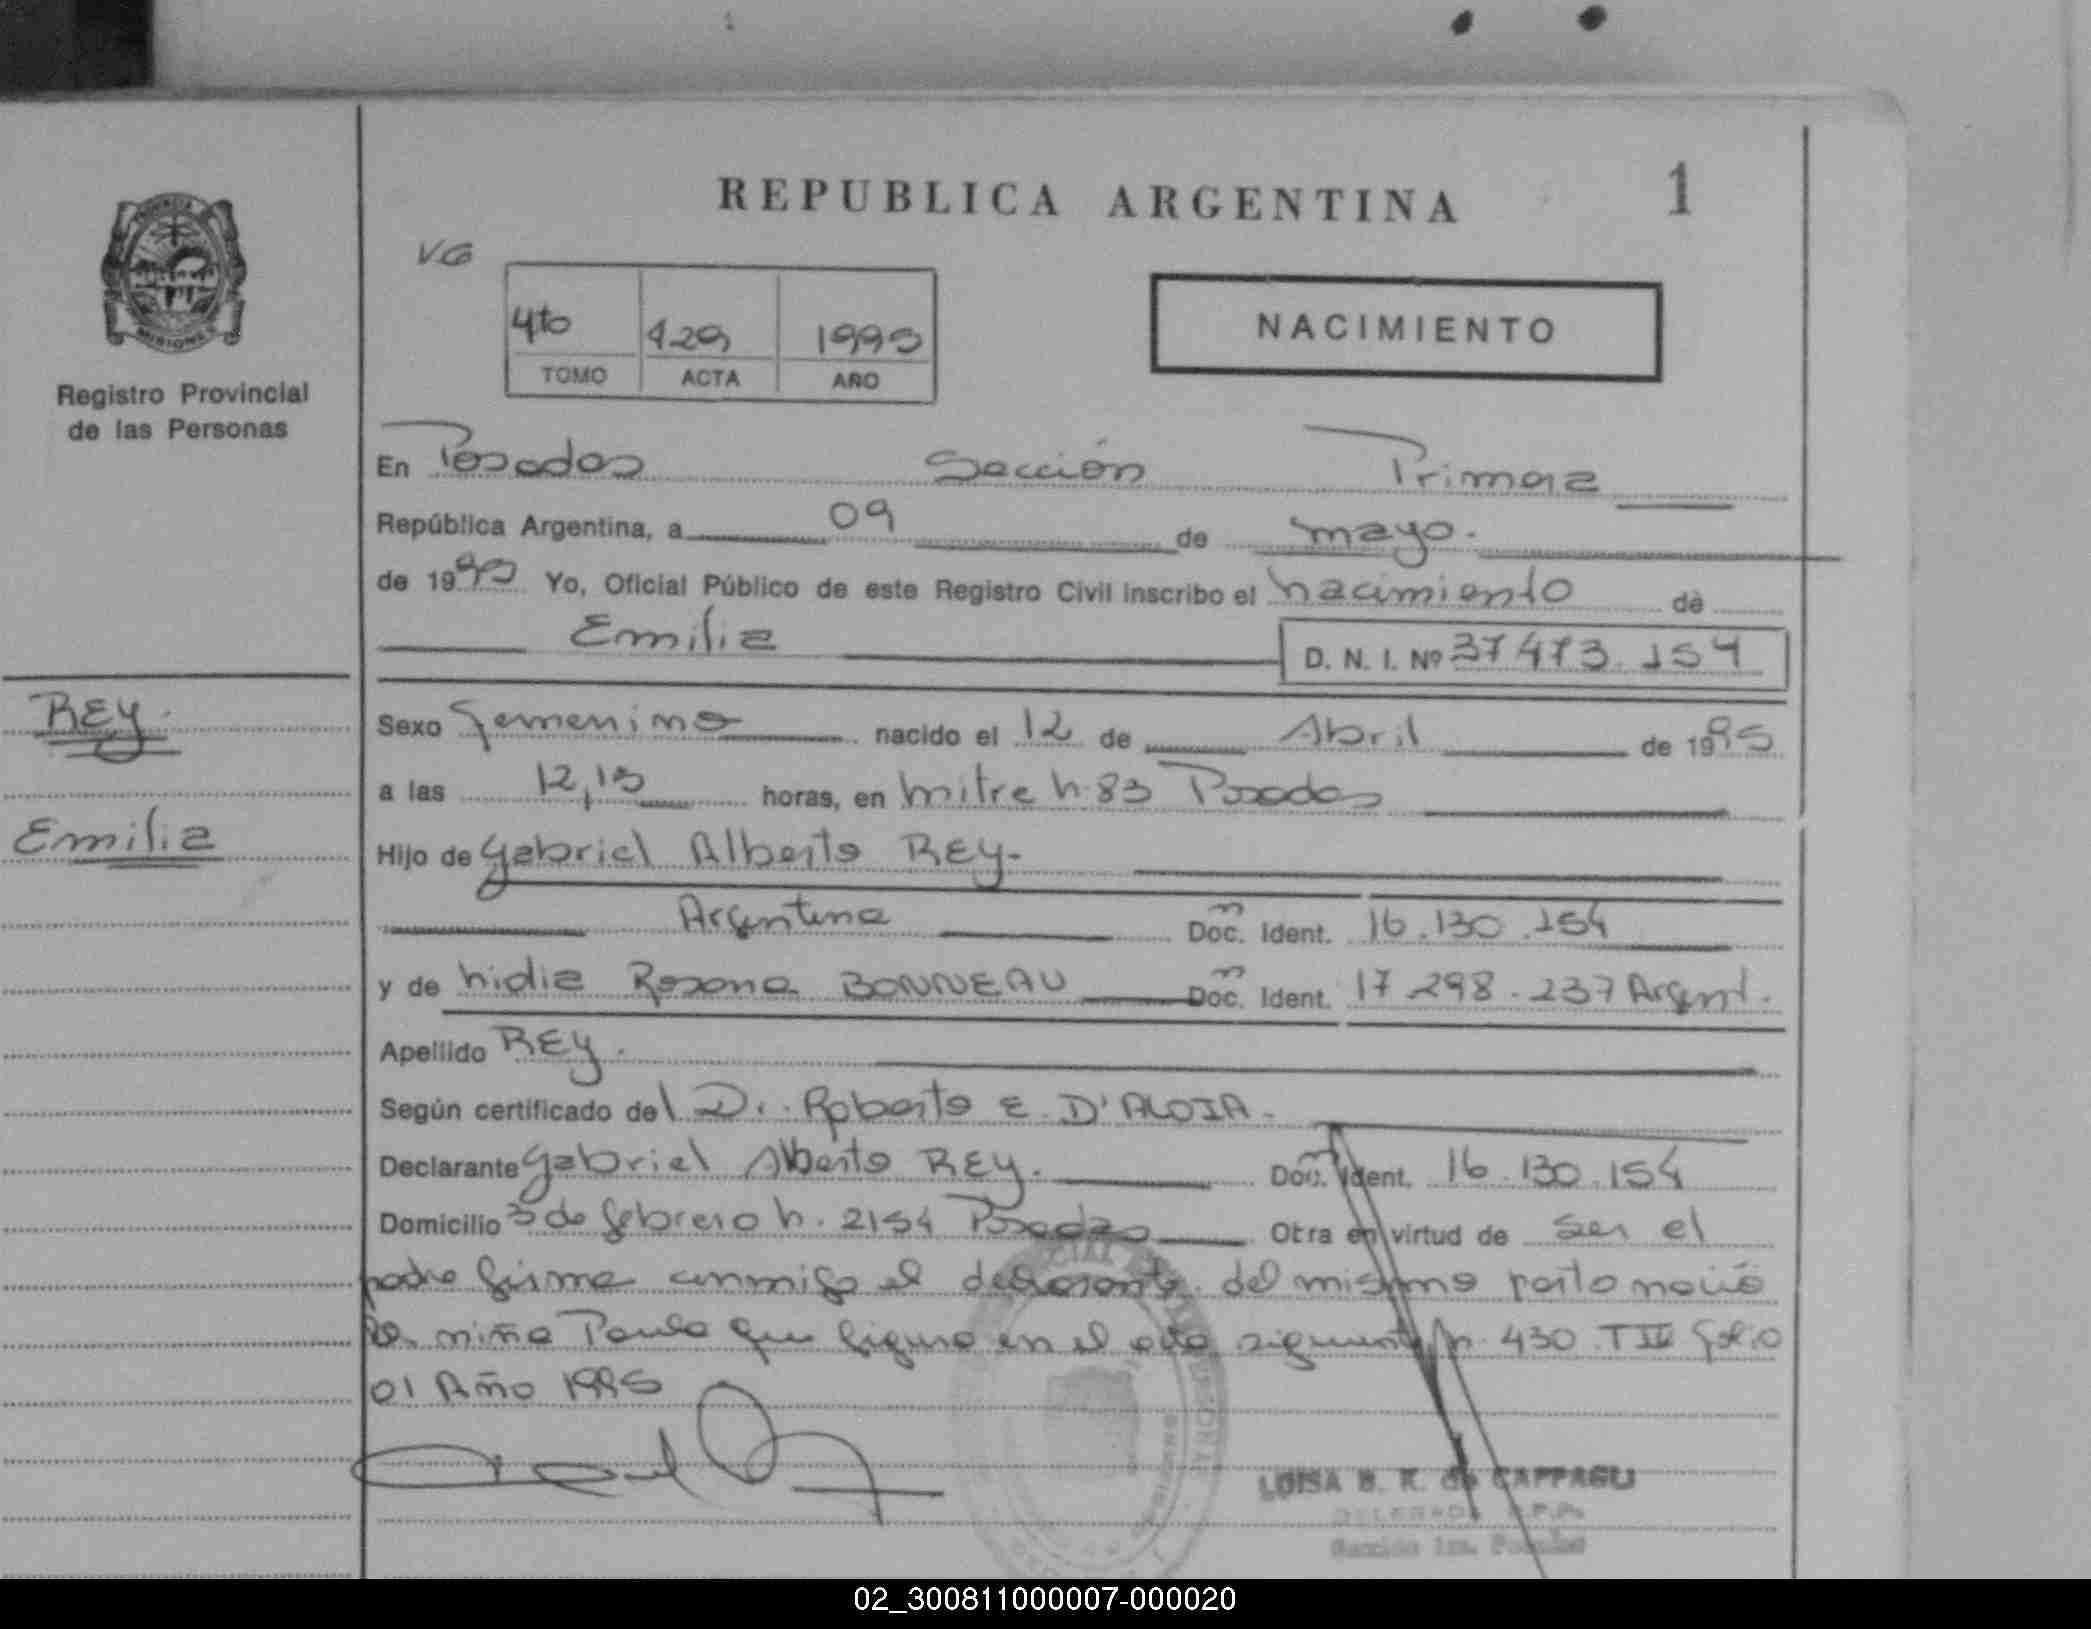 REPUBLICA ARGENTINA
1
PROVINCIA
MISIONES
Registro Provincial
de las Personas
VG
4to 429 1995
TOMO ACTA AÑO
NACIMIENTO
En Posadas Sección Primera
República Argentina, a 09 de mayo.
de 1995 Yo, Oficial Público de este Registro Civil inscribo el nacimiento de
Emilia
D. N. I. Nº 37473.154
REY.
Emilia
Sexo Femenino nacido el 12 de Abril de 1995
a las 12,15 horas, en mitre n. 83 Posadas
Hijo de Gabriel Alberto REY.
Argentina Doc. Ident. 16.130.154
y de Nidia Rosana BONNEAU Doc. Ident. 17.298.237 Argent.
Apellido REY.
Según certificado del Dr. Roberto E. D'ALOIA.
Declarante Gabriel Alberto REY. Doc. Ident. 16.130.154
Domicilio 3 de febrero n. 2154 Posadas Otra en virtud de ser el
padre firma conmigo el declarante. del mismo parto nació
la niña Paula que figura en el acta siguiente n. 430 T IV folio
01 Año 1995
LUISA B. R. de CAPPAGLI
DELEGADA R.P.P.
Sección 1ra. Posadas
02_300811000007-000020